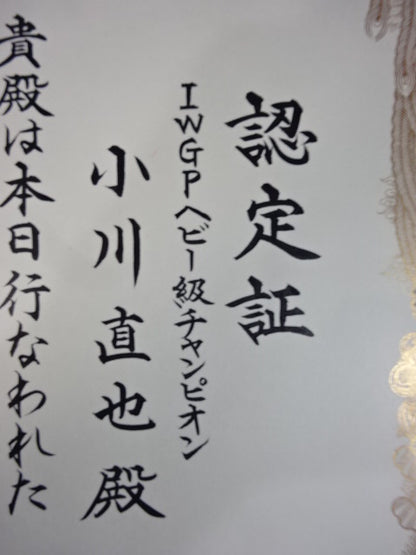 認定証
IWGPヘビー級チャンピオン
小川直也殿
貴殿は本日行なわれた